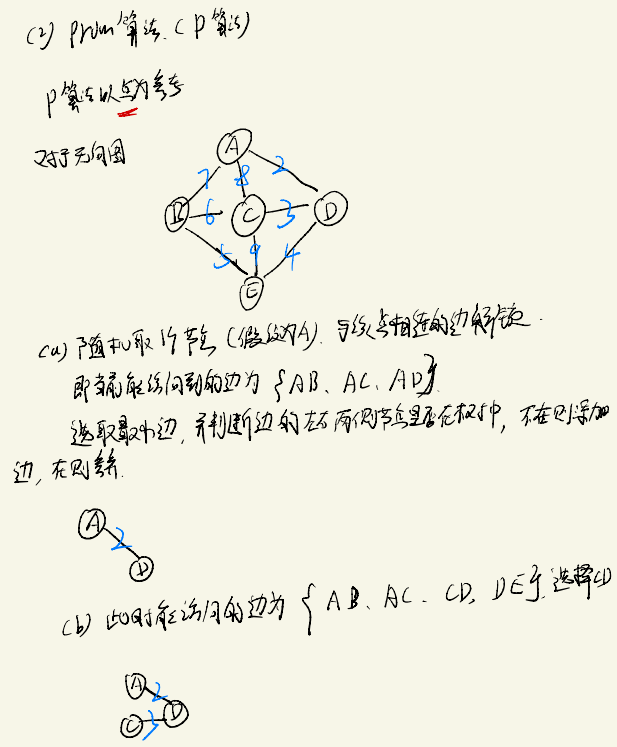 (2) Prim算法.(P算法)
P算法以点为参考
对于无向图
A
7 8 2
B 6 C 3 D
5 9 4
E
(a) 随机取1个节点(假设为A). 与该点相连的边解锁.
即当前能访问到的边为{AB、AC、AD}.
选取最小边,并判断边的左右两侧节点是否在树中,不在则添加
边,在则舍弃.
A
2
D
(b) 此时能访问的边为{AB、AC、CD、DE}.选择CD
A 2
C 3 D